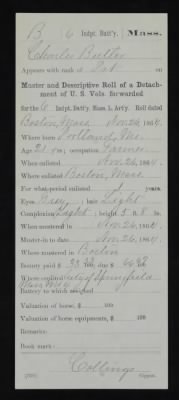 B 6 Indpt. Batt'y. Mass.
Charles Butler
Appears with rank of Pvt on
Muster and Descriptive Roll of a Detach-
ment of U. S. Vols. forwarded
for the 6 Indpt. Batt'y, Mass. L. Arty. Roll dated
Boston, Mass Nov. 26, 1864.
Where born Portland, Me.
Age 21 y'rs; occupation Farmer
When enlisted Nov. 26, 1864.
Where enlisted Boston, Mass.
For what period enlisted years.
Eyes Gray; hair Light
Complexion Light; height 5 ft. 8 in.
When mustered in Nov. 26, 1864.
Muster-in to date Nov. 26, 1864.
Where mustered in Boston
Bounty paid $ 33 100; due $ 100
Where credited City of Springfield
Battery to which assigned
Valuation of horse, $ 100
Valuation of horse equipments, $ 100
Remarks:
Book mark:
Collings
Copyist.